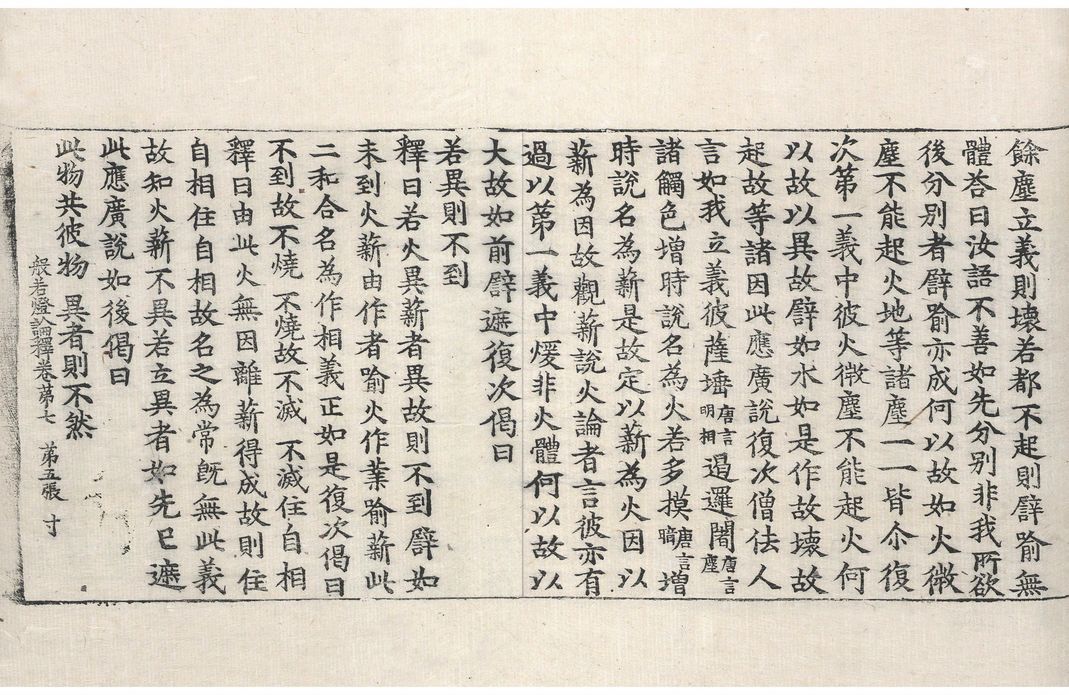 餘塵立義則壞若都不起則譬喻無
體答曰汝語不善如先分別非我所欲
後分別者譬喻亦成何以故如火微
塵不能起火地等諸塵一一皆尒復
次第一義中彼火微塵不能起火何
以故以異故譬如水如是作故壞故
起故等諸因此應廣說復次僧佉人
言如我立義彼薩埵唐言明相遏邏闍唐言塵
諸觸色增時說名為火若多摸唐言暗增
時說名為薪是故定以薪為火因以
薪為因故觀薪說火論者言彼亦有
過以第一義中煖非火體何以故以
大故如前譬遮復次偈曰
若異則不到
釋曰若火異薪者異故則不到譬如
未到火薪由作者喻火作業喻薪此
二和合名為作相義正如是復次偈曰
不到故不燒 不燒故不滅 不滅住自相
釋曰由此火無因離薪得成故則住
自相住自相故名之為常既無此義
故知火薪不異若立異者如先已遮
此應廣說如後偈曰
此物共彼物 異者則不然
般若燈論釋卷第七 第五張 寸